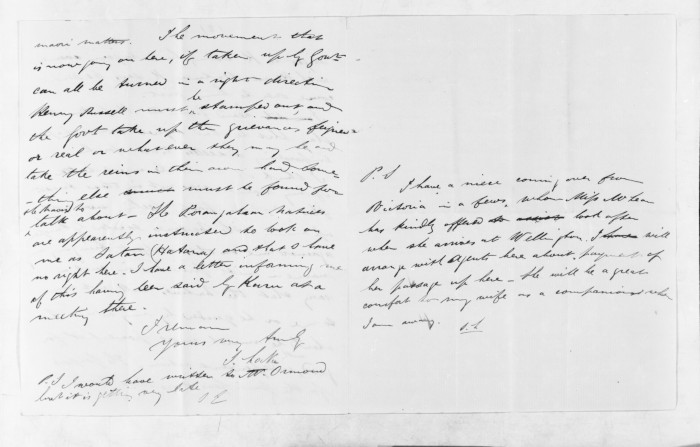 maori matters. The movement that
is now going on here, if taken up by Govt
can all be turned in a right direction
Henry Russell must be stamped out and
the Govt take up the grievances feigned
or real or whatever they may be and
take the reins in their own hand. Some
-thing else must be found for
the Maoris to
talk about – The Porangahau natives
are apparently instructed to look on
me as Satan (Hatana) and that I have
no right here. I have a letter informing me
of this having been said by at a
meeting there.
I remain
Yours very truly
S. Locke
P.S I would have written to Mr. Ormond
but it is getting very late
SL
P.S
I have a niece coming over from
Victoria in a few, whom Miss McLean
has kindly offered to look after
when she arrives at Wellington. I will
arrange with Agents here about payment of
her passage up here – She will be a great
comfort to my wife as a companion when
I am away.
S.L